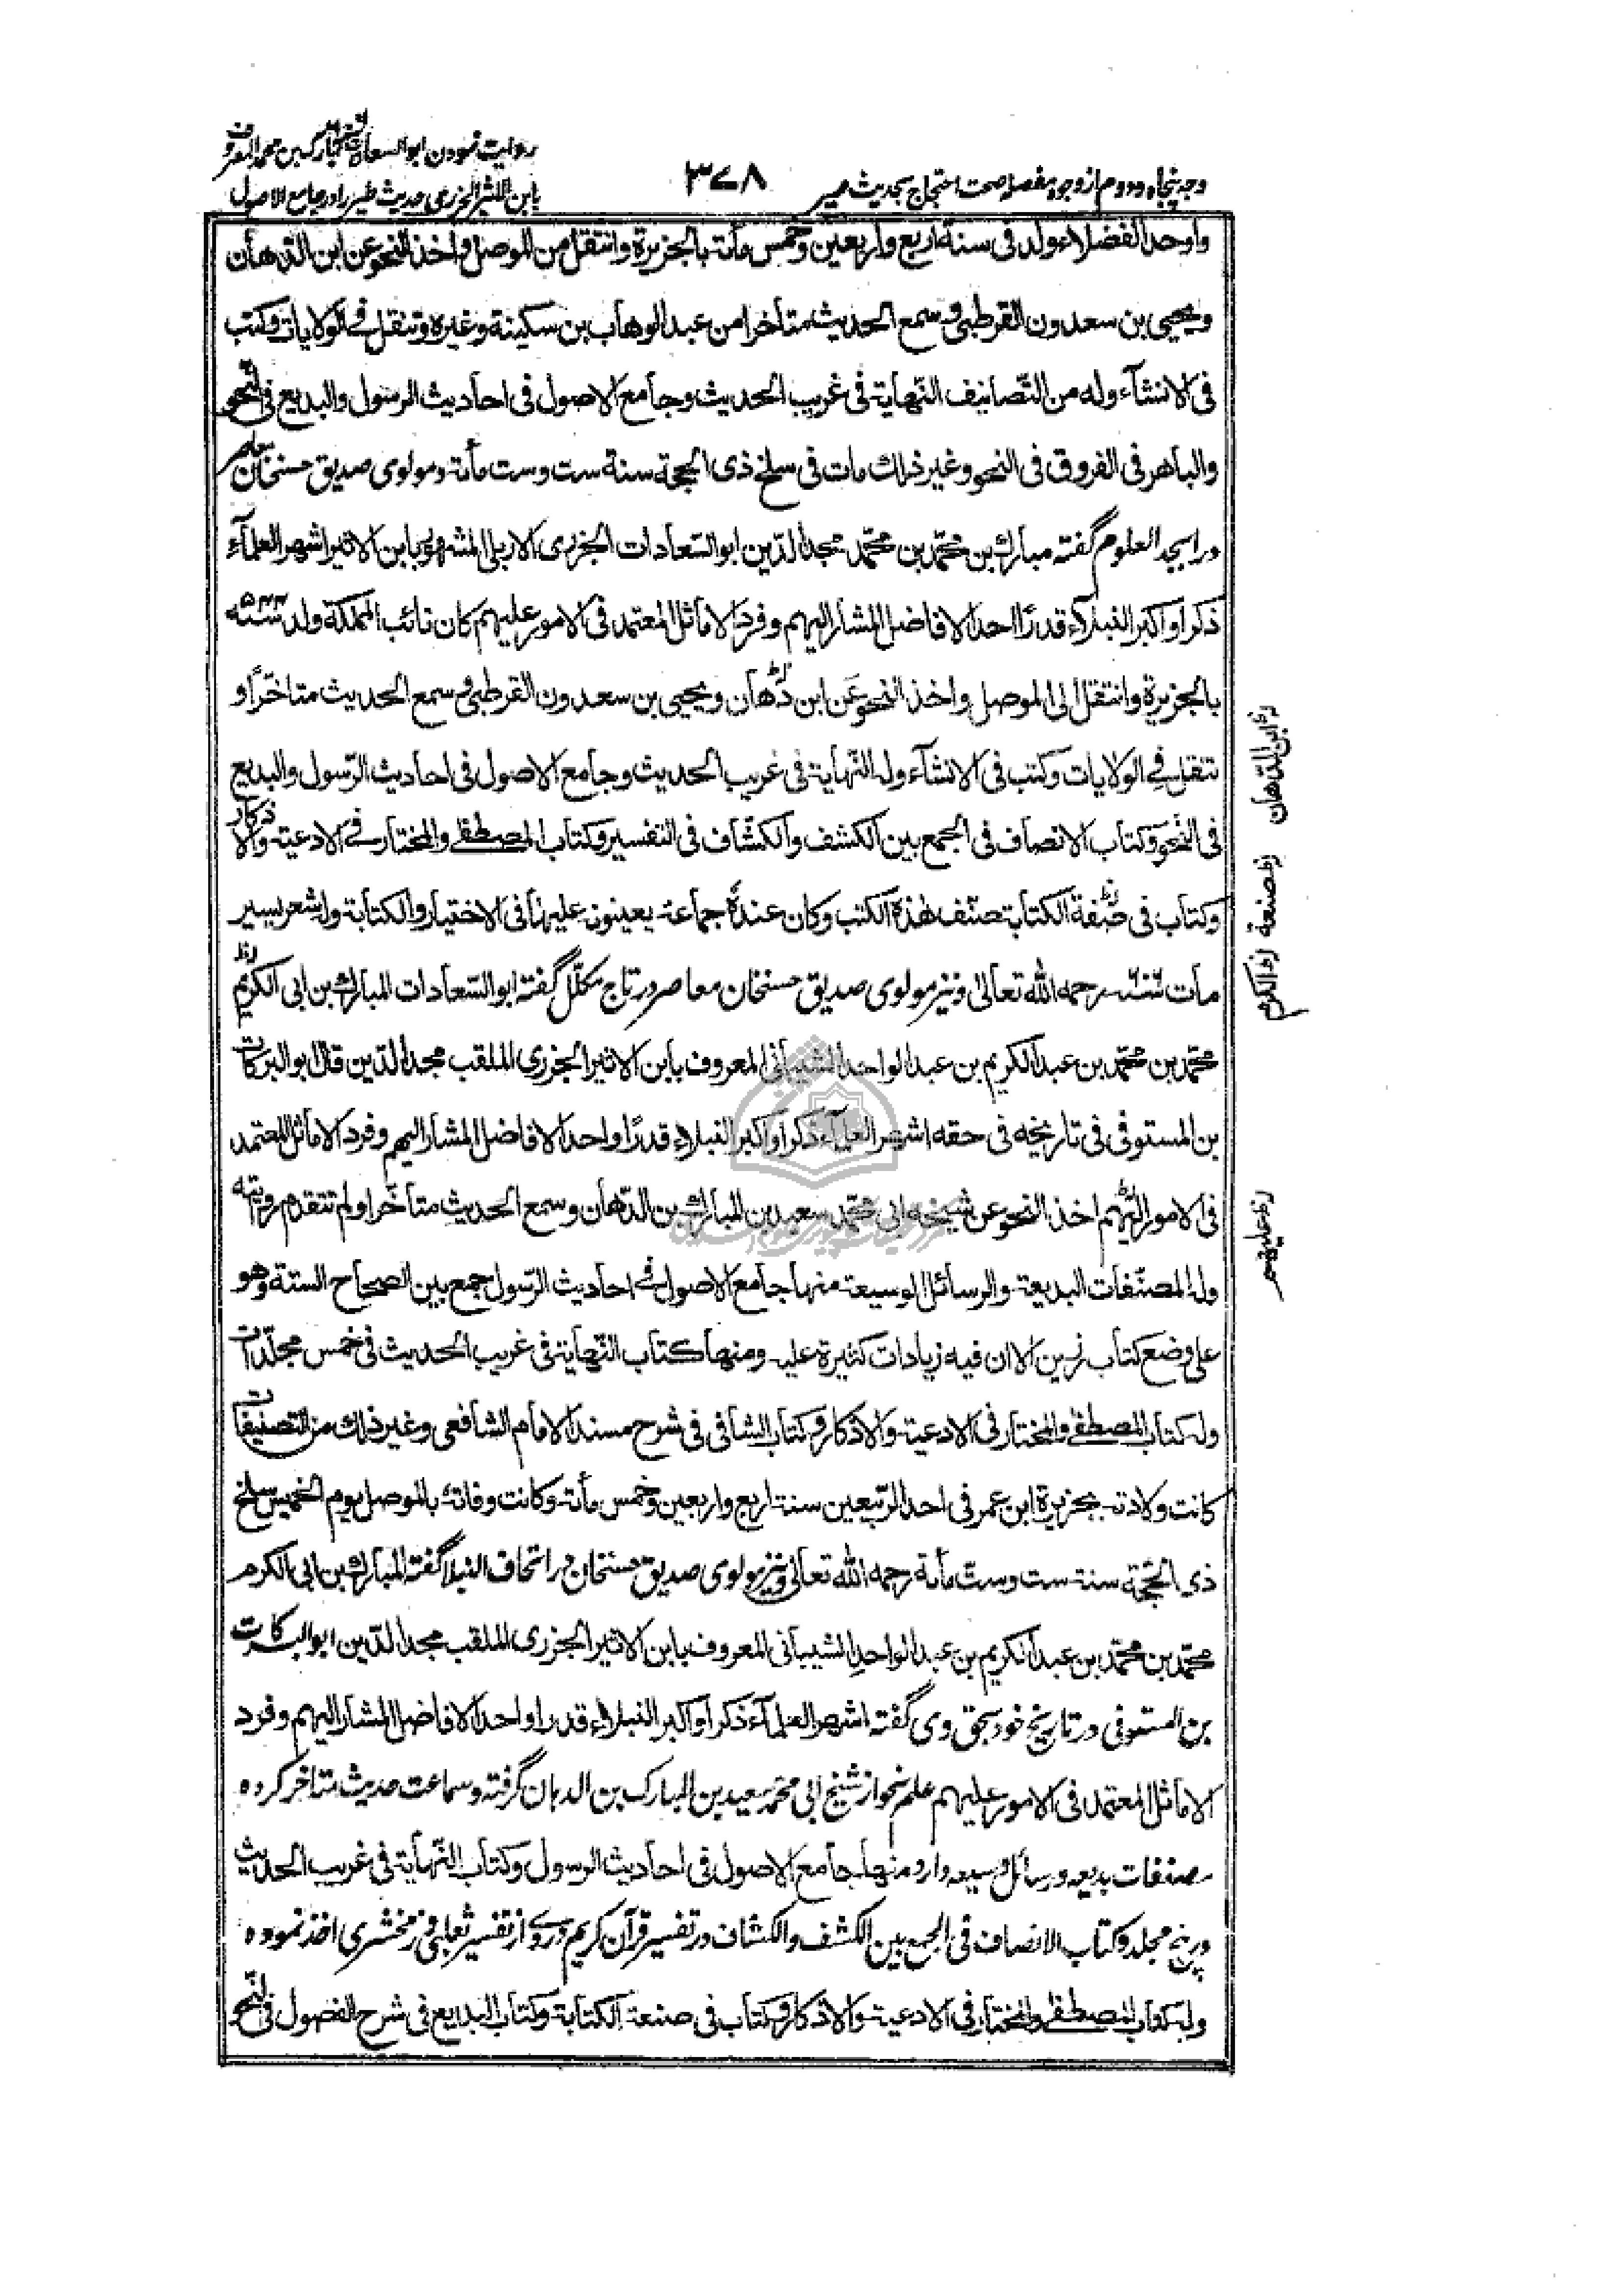 وجه پنجاه و دوم از وجوه مفصله صحت احتجاج بحدیث طیر
۳۷۸
روایت نمودن ابو السعادات المبارک بن محمد المعروف
بابن الاثیر الجزری حدیث طیر را در جامع الاصول
واوحد الفضلاء ولد فی سنة اربع واربعین وخمس مأته بالجزیرة وانتقل من الموصل واخذ النحو عن ابن الدّهان
ویحیی بن سعدون القرطبی وسمع الحدیث متأخرا من عبد الوهاب بن سکینة وغیره وتنقل فی الولایات وکتب
فی الانشآء وله من التّصانیف النّهایة فی غریب الحدیث وجامع الاصول فی احادیث الرسول والبدیع فی النّحو
والباهر فی الفروق فی النحو وغیر ذلك مات فی سلخ ذی الحجة سنة ست وست مأته ومولوی صدیق حسنخان معاصر
در ابجد العلوم گفته مبارك بن محمّد بن محمّد مجد الدّین ابو السّعادات الجزری الاربلی المشهور بابن الاثیر اشهر العلمآء
ذکرا واکبر النبلاء قدرًا احد الافاضل المشار الیهم وفرد الاماثل المعتمد فی الامور علیهم کان نائب المملکة ولد سنه ۵۴۴
بالجزیرة وانتقل الی الموصل واخذ النحو عَن ابن دهّان ویحیی بن سعدون القرطبی وسمع الحدیث متاخّرًا و
تنقل فے الولایات وکتب فی الانشآء وله النّهایة فی غریب الحدیث وجامع الاصول فی احادیث الرّسول والبدیع
فی النّحو وکتاب الانصاف فی الجمع بین الکشف والکشّاف فی التفسیر وکتاب المصطفی والمختار فے الادعیة والاذکار
وکتاب فی صفة الکتابة صنّف هذه الکتب وکان عندهٗ جماعة یعینونه علیها فی الاختیار والکتابة وله شعر یسیر
مات سنه رحمه الله تعالیٰ ونیز مولوی صدیق حسنخان معاصر در تاج مکلّل گفته ابو السّعادات المبارك بن ابی الکریم
محمّد بن محمّد بن عبد الکریم بن عبد الواحد الشیبانی المعروف بابن الاثیر الجزری الملقب مجد الدین قال ابو البرکات
بن المستوفی فی تاریخه فی حقه اشهر العلمآء ذکرا واکبر النبلاء قدرًا واحد الافاضل المشار الیهم وفرد الاماثل المعتمد
فی الامور الیهم اخذ النحو عن شیخه ابی محمّد سعید بن المبارك بن الدّهان وسمع الحدیث متأخّرا ولم تتقدم روایته
وله المصنّفات البدیعة والرسائل الوسیعة منها جامع الاصول فے احادیث الرّسول جمع بین الصحاح الستة وهو
علی وضع کتاب رزین الا ان فیه زیادات کثیرة علیه ومنها کتاب النّهایة فی غریب الحدیث فی خمس مجلّدات
وله کتاب المصطفے والمختار فی الادعیة والاذکار وکتاب الشافی فی شرح مسند الامام الشافعی وغیر ذلك من التصنیفات
کانت ولادته بجزیرة ابن عمر فی احد الرّبیعین سنة اربع واربعین وخمس مأته وکانت وفاته بالموصل یوم الخمیس سلخ
ذی الحجّة سنة ست وستّ مأة رحمه الله تعالی ونیز مولوی صدیق حسنخان در اتحاف النبلا گفته المبارك بن ابی الکرم
محمّد بن محمّد بن عبد الکریم بن عبد الواحد الشیبانی المعروف بابن الاثیر الجزری الملقب مجد الدّین ابو البرکات
بن المستوفی در تاریخ خود بحق وی گفته اشهر العلمآء ذکرا واکبر النبلاء قدرا واحد الافاضل المشار الیهم وفرد
الاماثل المعتمد فی الامور علیهم علم نحو از شیخ ابی محمد سعید بن المبارک بن الدهان گرفته وسماعت حدیث متاخر کرده
مصنفات بدیعه ورسائل وسیعه دارد منها جامع الاصول فی احادیث الرسول وکتاب النّهایة فی غریب الحدیث
در پنج مجلد وکتاب الانصاف فی الجمع بین الکشف والکشاف در تفسیر قرآن کریم دروے از تفسیر ثعلبی وزمخشری اخذ نموده
وله کتاب المصطفی والمختار فی الادعیة والاذکار وکتاب فی صنعة الکتابة وکتاب البدایع فی شرح الفصول فی النّحو
ابن الدّهان
صنعة
الکرم
علیهم